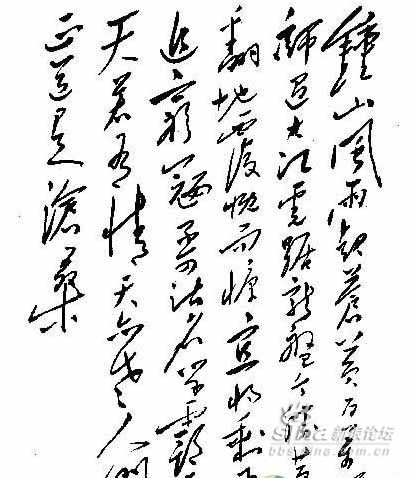 鍾山風雨起蒼黃百萬
師過大江虎踞龍盤今勝
翻地覆慨而慷宜將剩
追窮寇不可沽名學霸
天若有情天亦老人間
正道是滄桑
新浪论坛